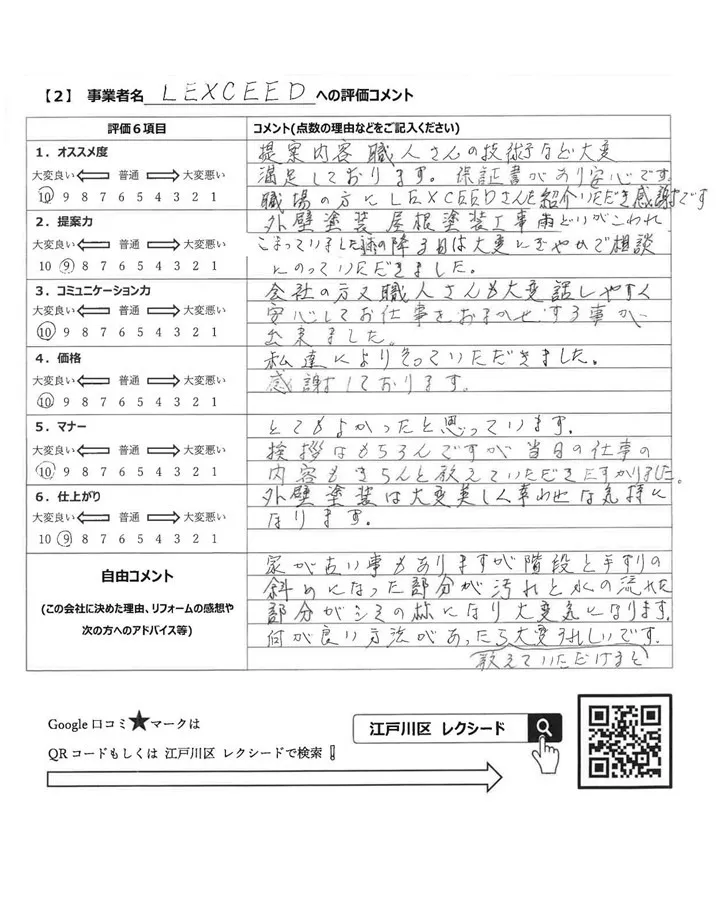 【2】 事業者名 LEXCEED への評価コメント
評価6項目
コメント(点数の理由などをご記入ください)
1．オススメ度
大変良い 普通 大変悪い
10 9 8 7 6 5 4 3 2 1
提案内容 職人さんの技術など大変
満足しております。保証書があり安心です。
職場の方にLEXCEEDさんを紹介いただき感謝です
2．提案力
大変良い 普通 大変悪い
10 9 8 7 6 5 4 3 2 1
外壁塗装 屋根塗装工事 雨どいがこわれ
こまっていました 雨の降る日は大変にぎやかで相談
にのっていただきました。
3．コミュニケーション力
大変良い 普通 大変悪い
10 9 8 7 6 5 4 3 2 1
会社の方又職人さんも大変話しやすく
安心してお仕事をおまかせする事が
出来ました。
4．価格
大変良い 普通 大変悪い
10 9 8 7 6 5 4 3 2 1
私達によりそっていただきました。
感謝しております。
5．マナー
大変良い 普通 大変悪い
10 9 8 7 6 5 4 3 2 1
とてもよかったと思っています。
挨拶はもちろんですが 当日の仕事の
内容もきちんと教えていただきたすかりました。
6．仕上がり
大変良い 普通 大変悪い
10 9 8 7 6 5 4 3 2 1
外壁塗装は大変美しく幸わせな気持に
なります。
自由コメント
(この会社に決めた理由、リフォームの感想や
次の方へのアドバイス等)
家が古い事もありますが階段と手すりの
斜めになった部分が汚れと水の流れた
部分がシミの様になり大変気になります。
何か良い方法があったら大変うれしいです。
教えていただけます
Google 口コミ★マークは
QRコードもしくは 江戸川区 レクシードで検索！
江戸川区 レクシード